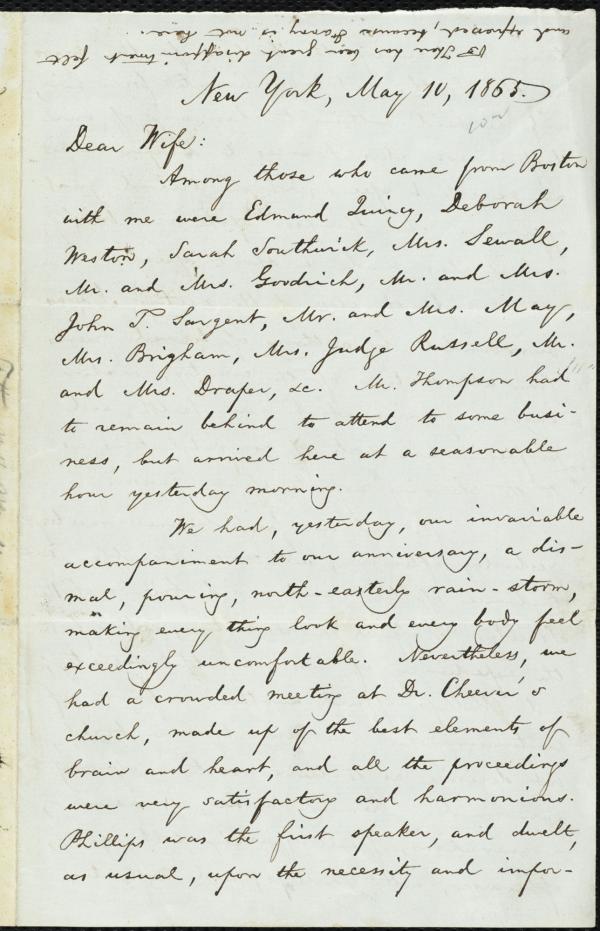 There has been great disappointment felt
and expressed, because Fanny is not here.
New York, May 10, 1865.
Dear Wife:
Among those who came from Boston
with me were Edmund Quincy, Deborah
Weston, Sarah Southwick, Mrs. Sewall,
Mr. and Mrs. Goodrich, Mr. and Mrs.
John T. Sargent, Mr. and Mrs. May,
Mrs. Brigham, Mrs. Judge Russell, Mr.
and Mrs. Draper, &c. Mr. Thompson had
to remain behind to attend to some busi-
ness, but arrived here at a seasonable
hour yesterday morning.
We had, yesterday, our invariable
accompaniment to our anniversary, a dis-
mal, pouring, north-easterly rain-storm,
making every thing look and every body feel
exceedingly uncomfortable. Nevertheless, we
had a crowded meeting at Dr. Cheever's
church, made up of the best elements of
brain and heart, and all the proceedings
were very satisfactory and harmonious.
Phillips was the first speaker, and dwelt,
as usual, upon the necessity and impor-